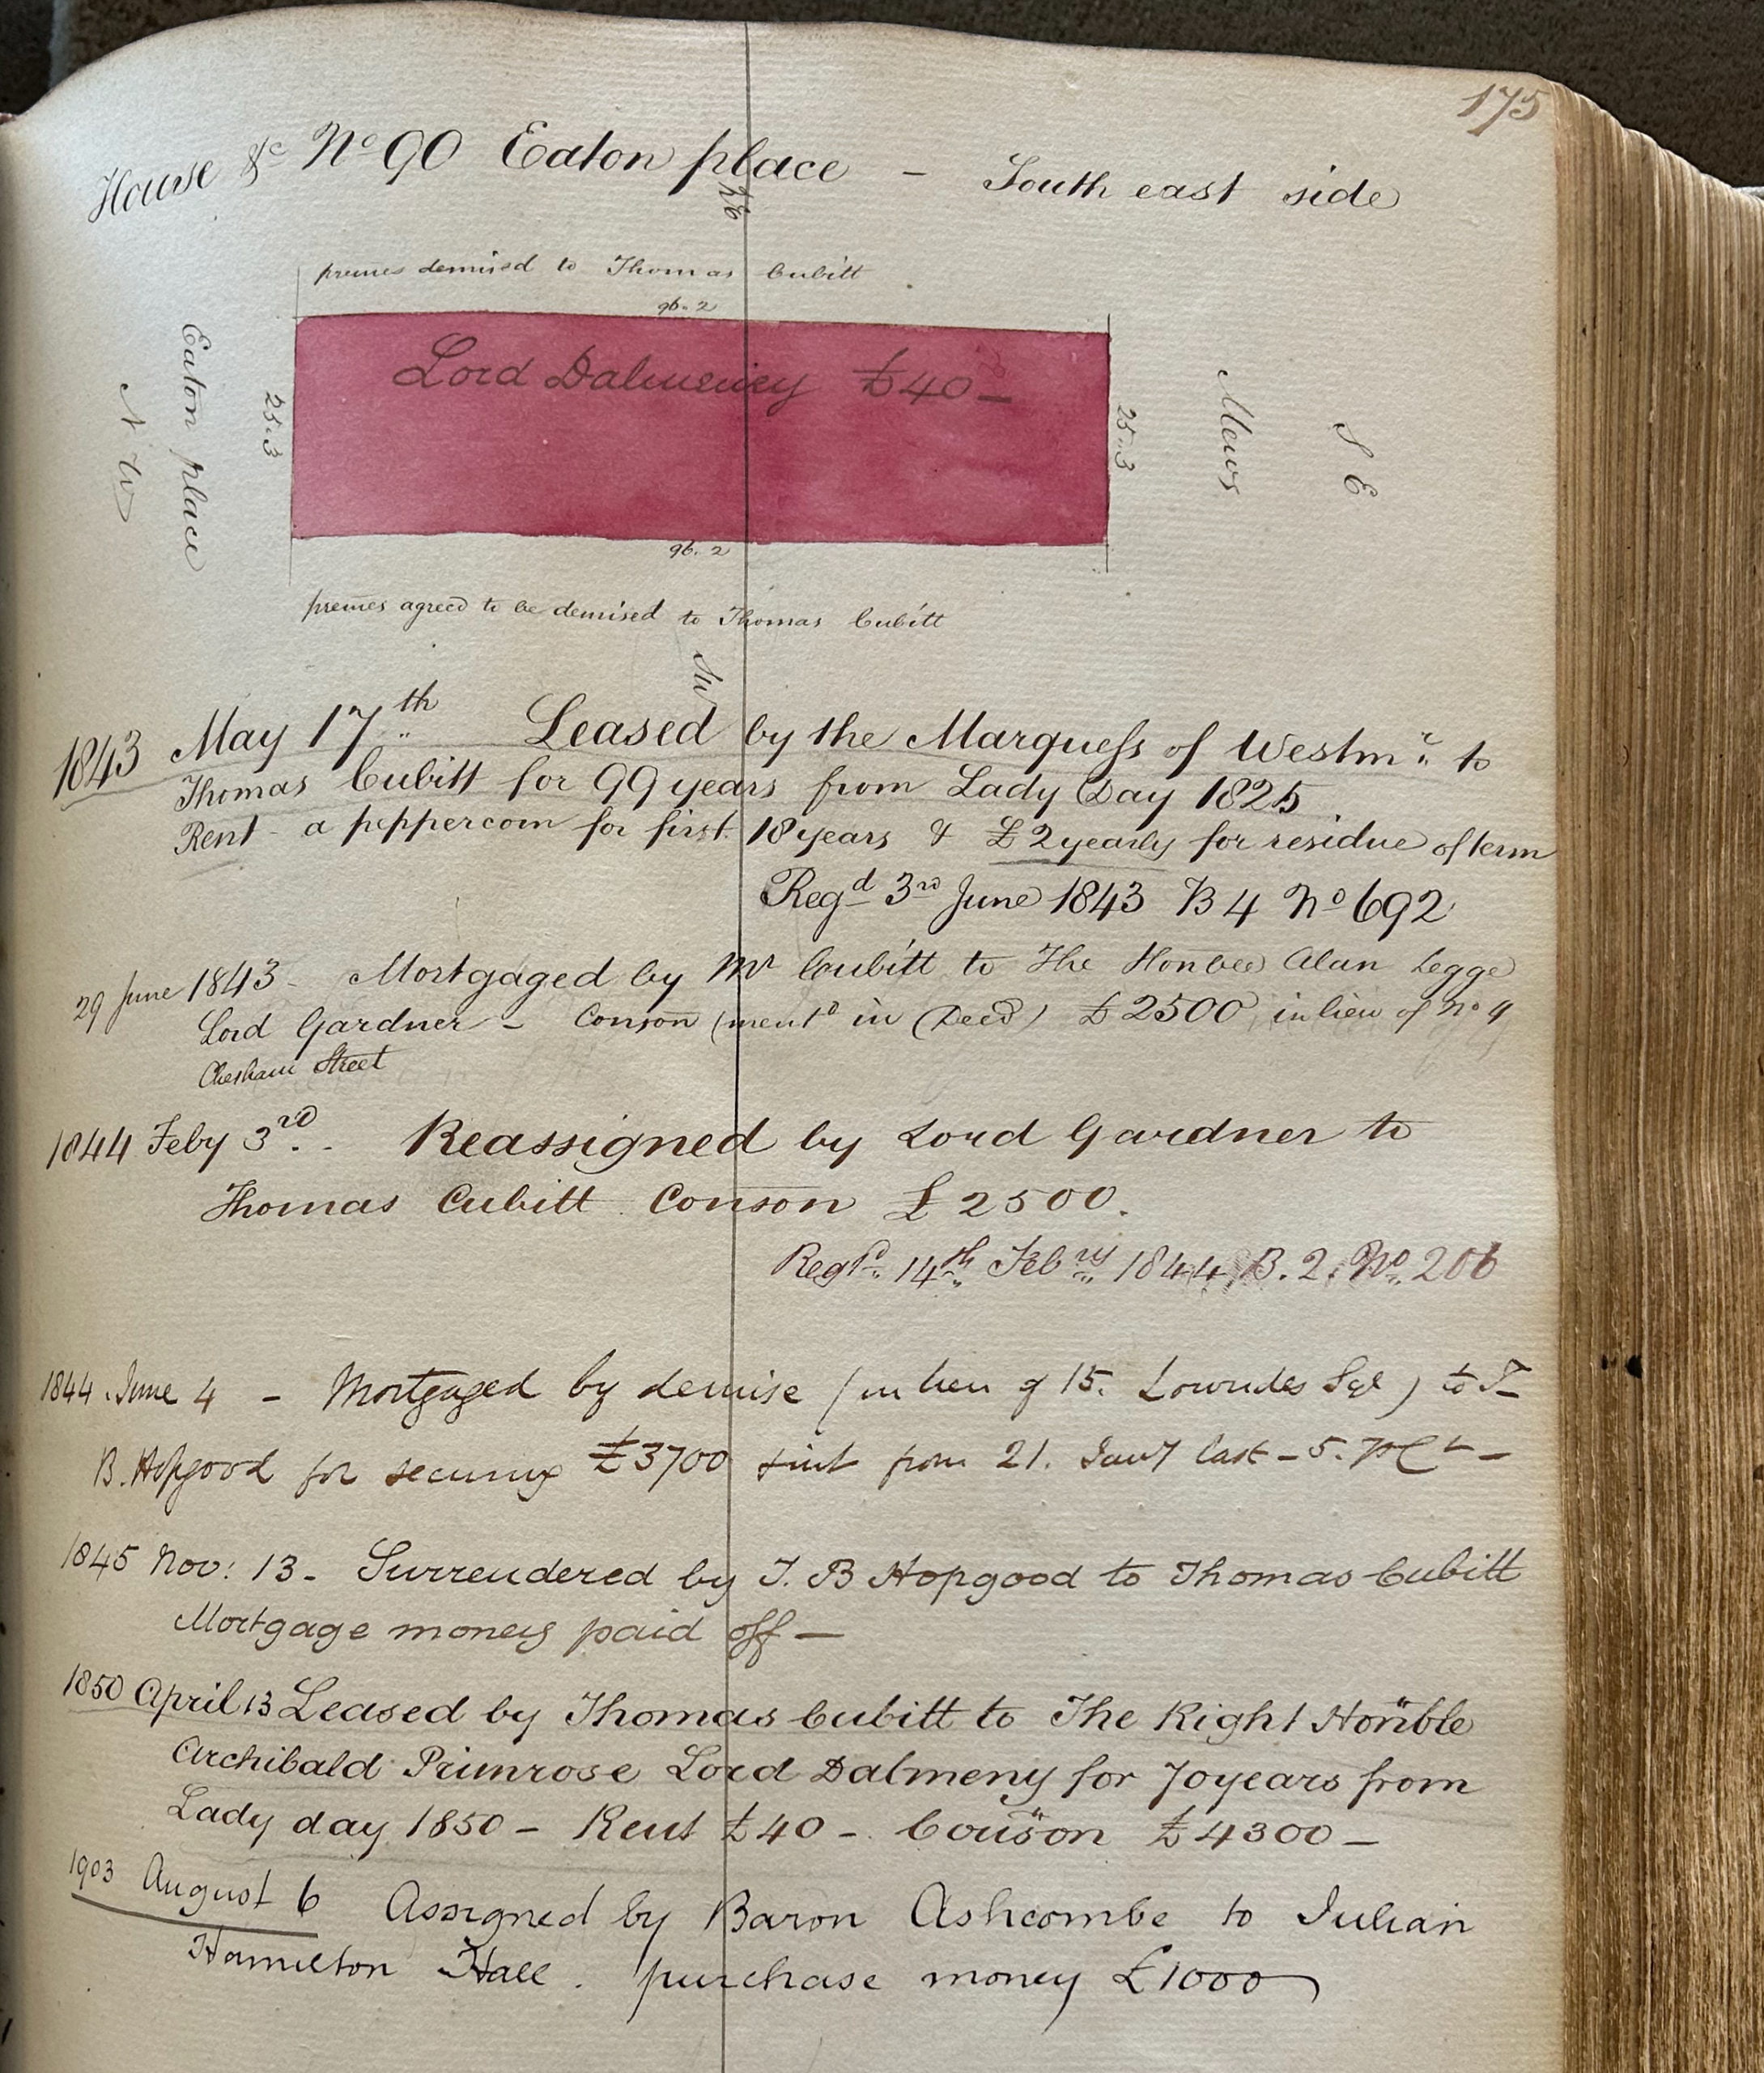 175
House &c No 90 Eaton place - South east side
NE
premes demised to Thomas Cubitt
96.2
Lord Dalmeny £40-
Eaton place
N W
25.3
25.3
Mews
S E
96.2
premes agreed to be demised to Thomas Cubitt
SW
1843 May 17th Leased by the Marquess of Westmr to
Thomas Cubitt for 99 years from Lady Day 1825
Rent - a peppercorn for first 18 years & £2 yearly for residue of term
Regd 3rd June 1843 B 4 No 692
29 June 1843 - Mortgaged by Mr Cubitt to The Honbee Alan Legge
Lord Gardner - Conson (mentd in Deed) £2500 in lieu of No 9
Chesham Street
1844 Feby 3rd - Reassigned by Lord Gardner to
Thomas Cubitt Conson £2500.
Regd 14th Febry 1844 B. 2. No. 206
1844 June 4 - Mortgaged by demise (in lieu of 15. Lowndes Sqe) to T
B. Hopgood for securing £3700 & int from 21. Jany last - 5. P Ct -
1845 Nov: 13 - Surrendered by T. B Hopgood to Thomas Cubitt
Mortgage money paid off -
1850 April 13 Leased by Thomas Cubitt to The Right Honble
Archibald Primrose Lord Dalmeny for 70 years from
Lady day 1850 - Rent £40 - Conson £4300 -
1903 August 6 Assigned by Baron Ashcombe to Julian
Hamilton Hall. purchase money £1000